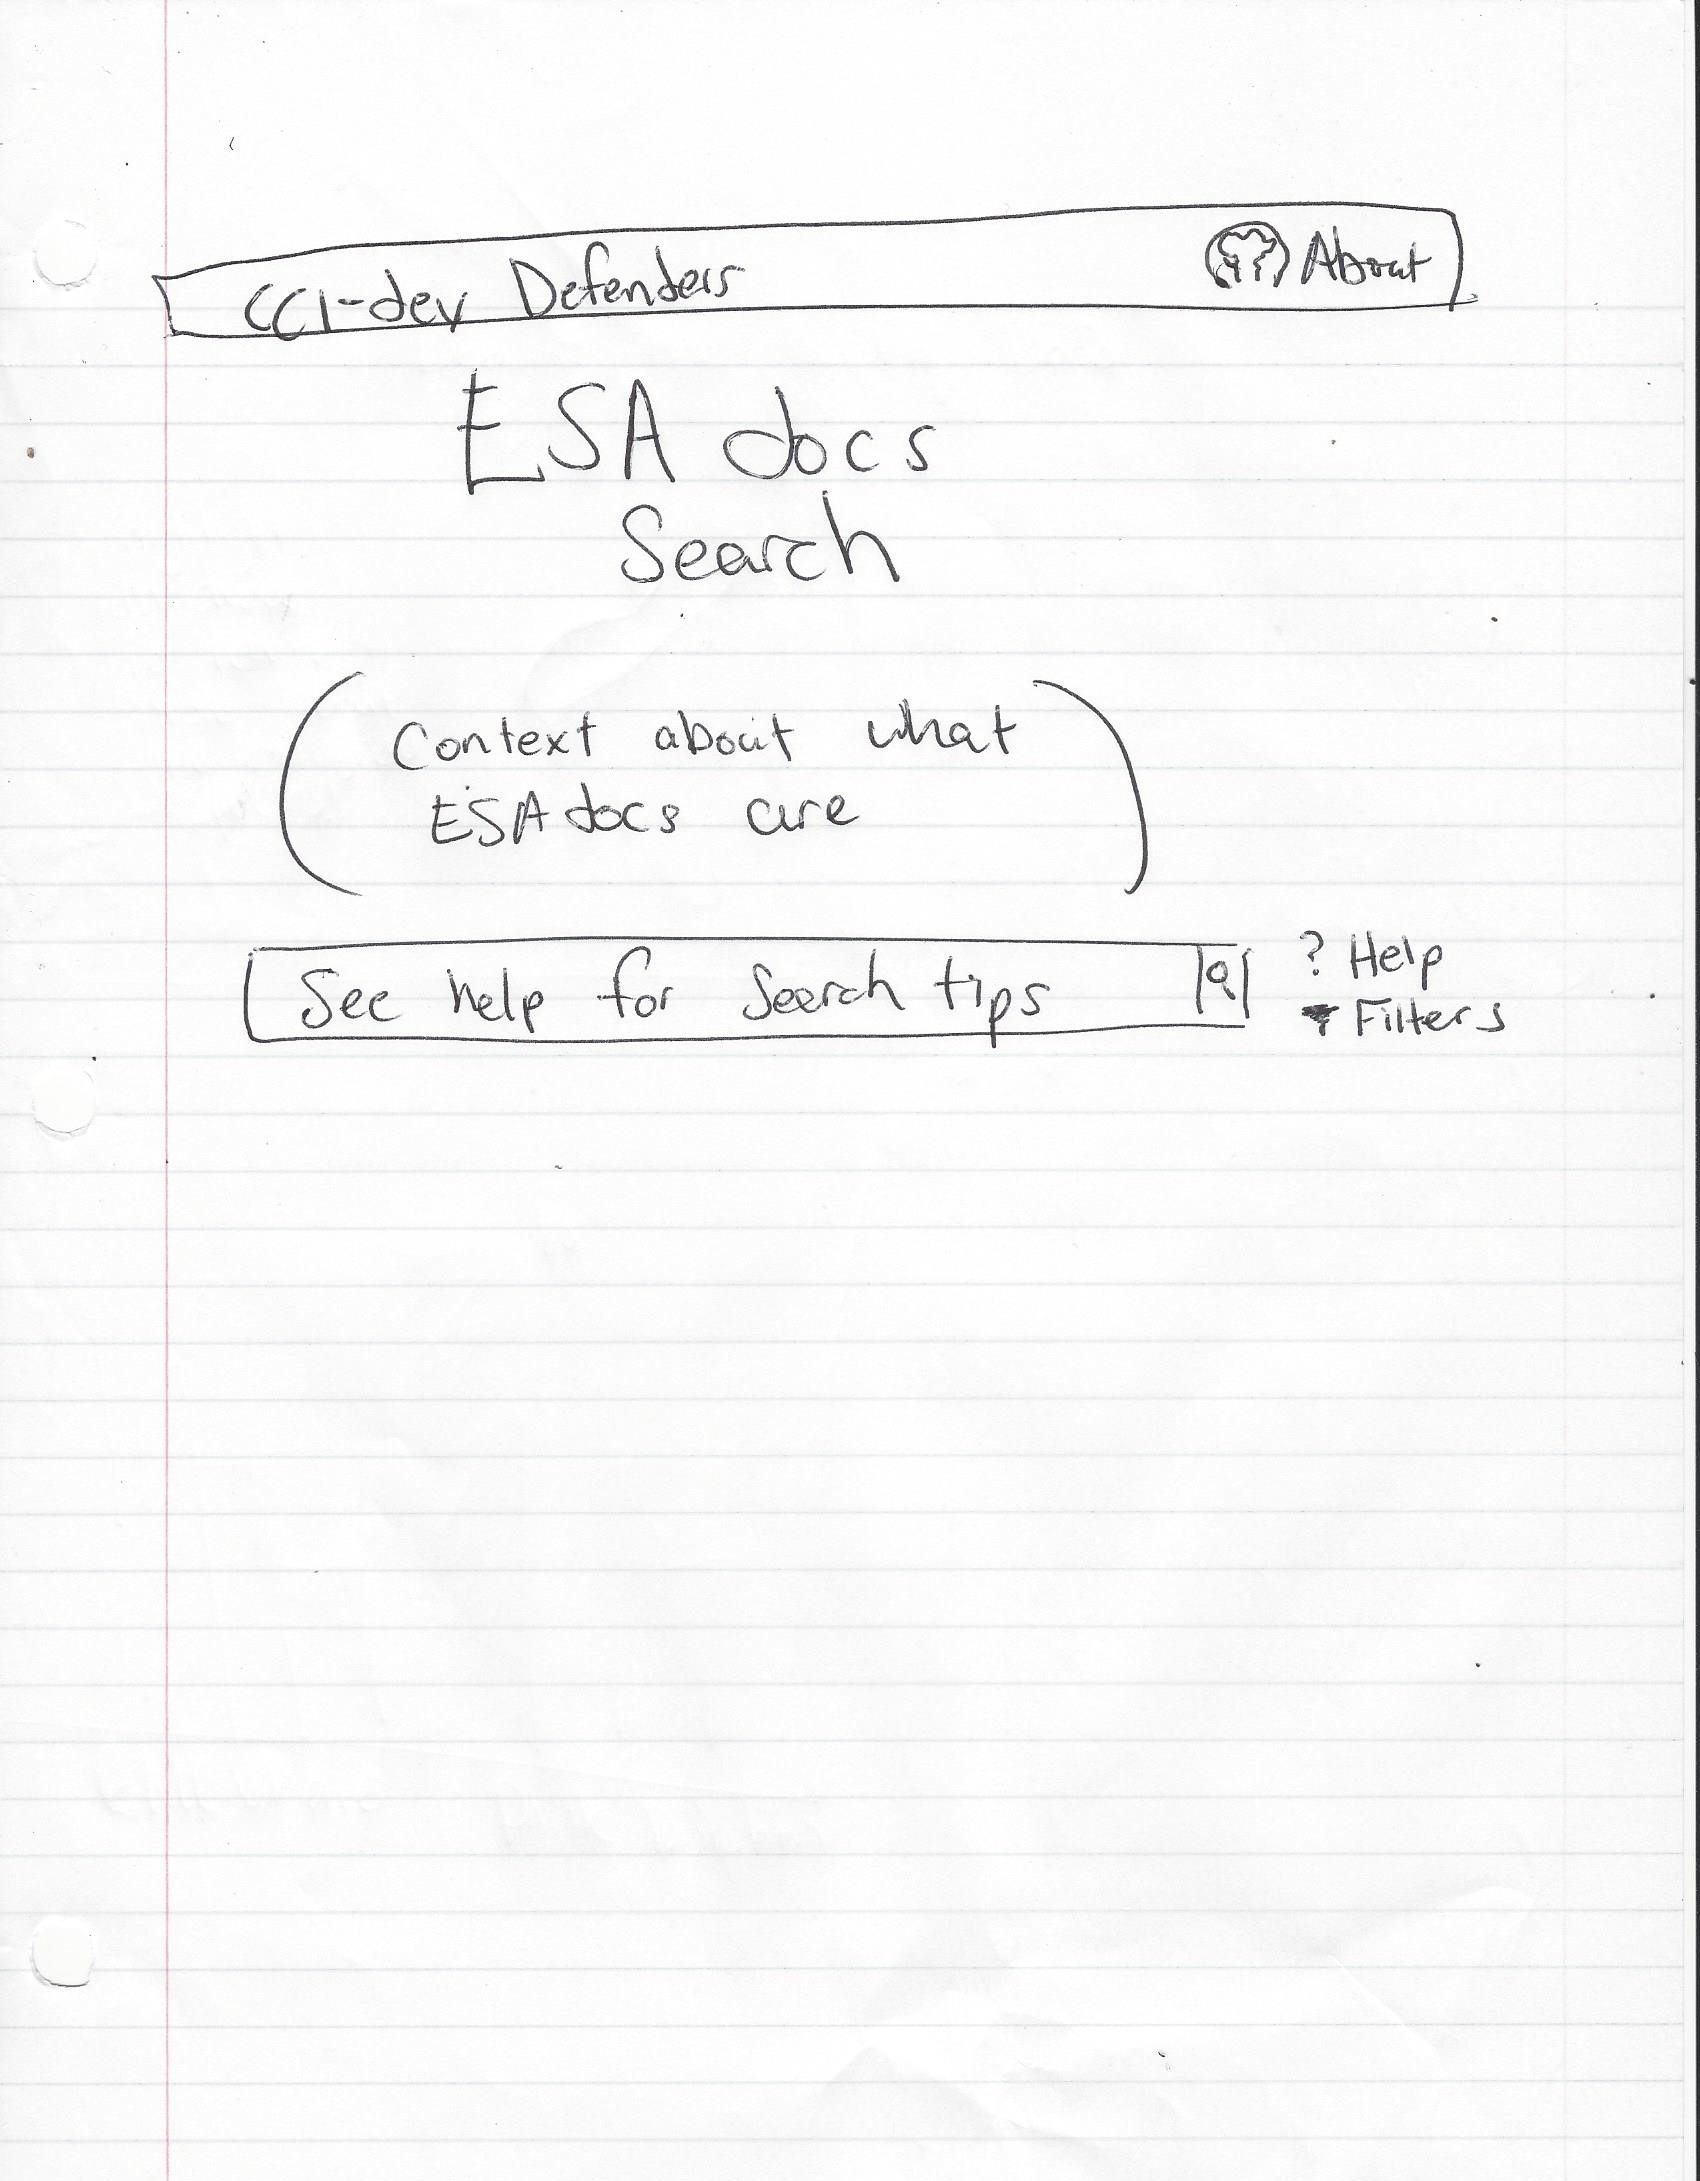 CCI-dev Defenders About
ESA docs
Search
(Context about what
ESA docs are)
See help for Search tips ? Help
Filters